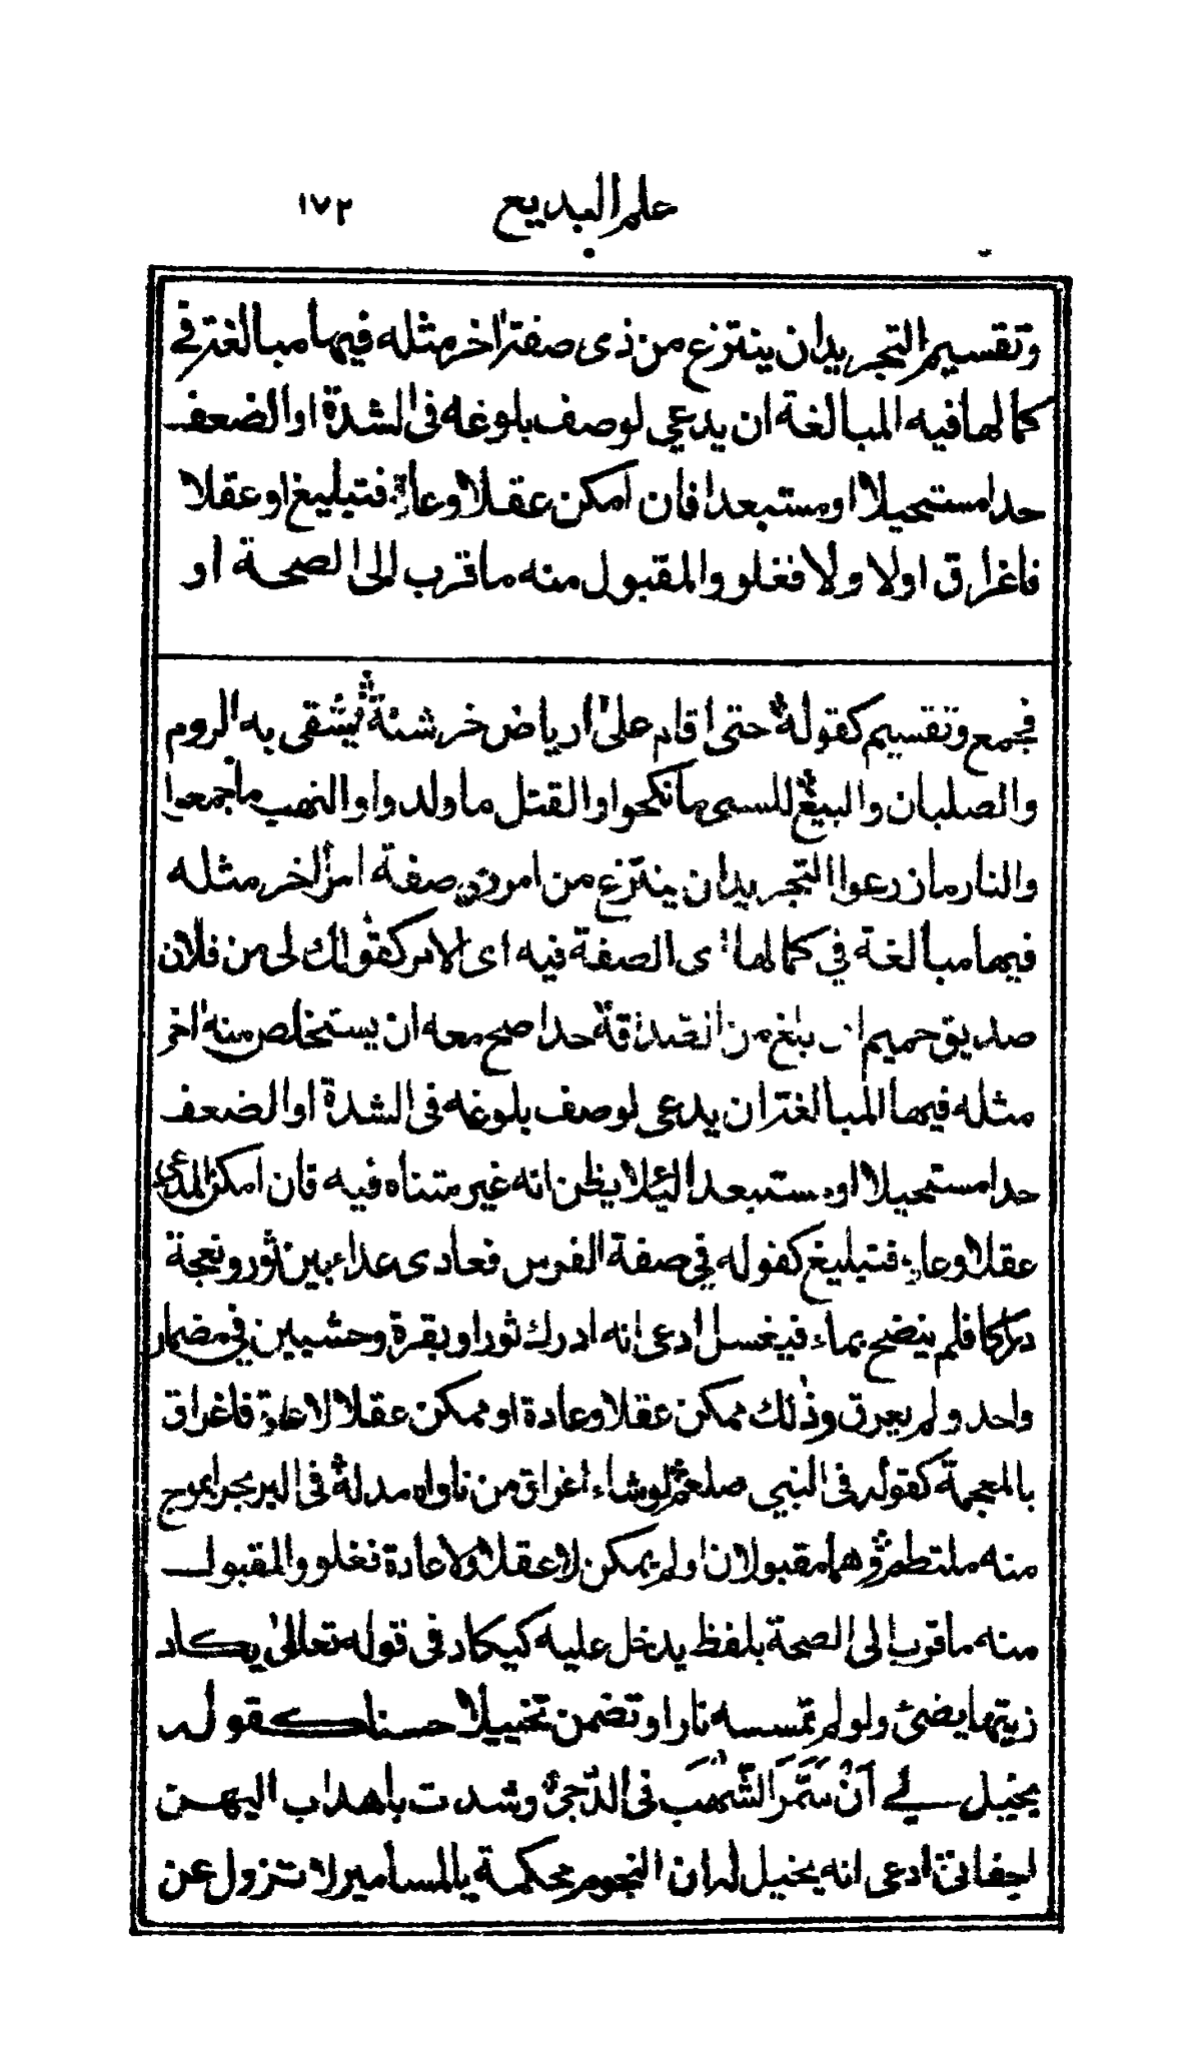 علم البديع ١٧٢
وتقسيم التجريد ان ينتزع من ذى صفة اخر مثله فيها مبالغة في
كمالها فيه المبالغة ان يدعي لوصف بلوغه فى الشدة او الضعف
حدا مستحيلا او مستبعدا فان امكن عقلا وعادة فتبليغ او عقلا
فاغراق او لا ولا فغلو والمقبول منه ما قرب الى الصحة او
فجمع وتقسيم كقوله حتى اقام على ارباض خرشنة تشقى به الروم
والصلبان والبيع للسبى ما نكحوا والقتل ما ولدوا والنهب ما جمعوا
والنار ما زرعوا التجريد ان ينتزع من امر ذى صفة امر اخر مثله
فيها مبالغة في كمالها اى الصفة فيه اى الامر كقولك لى من فلان
صديق حميم اى بلغ من الصداقة حدا صح معه ان يستخلص منه اخر
مثله فيها المبالغة ان يدعى لوصف بلوغه فى الشدة او الضعف
حدا مستحيلا او مستبعدا لئلا يظن انه غير متناه فيه فان امكن المدعى
عقلا وعادة فتبليغ كقوله في صفة الفرس فعادى عداء بين ثور ونعجة
دراكا فلم ينضح بماء فيغسل ادعى انه ادرك ثورا وبقرة وحشيين في مضمار
واحد ولم يعرق وذلك ممكن عقلا وعادة او ممكن عقلا لا عادة فاغراق
بالمعجمة كقوله فى النبي صلعم لو شاء اغراق من ناواه مد له فى البر بحرا بموج
منه ملتطم وهما مقبولان او لم يمكن لا عقلا ولا عادة فغلو والمقبول
منه ما قرب الى الصحة بلفظ يدخل عليه كيكاد فى قوله تعالى يكاد
زيتها يضئ ولو لم تمسسه نار او تضمن تخييلا حسنا كقوله
يخيل لي أن سمر الشهب فى الدجى وشدت باهداب اليهن
اجفانى ادعى انه يخيل له ان النجوم محكمة بالمسامير لا تزول عن